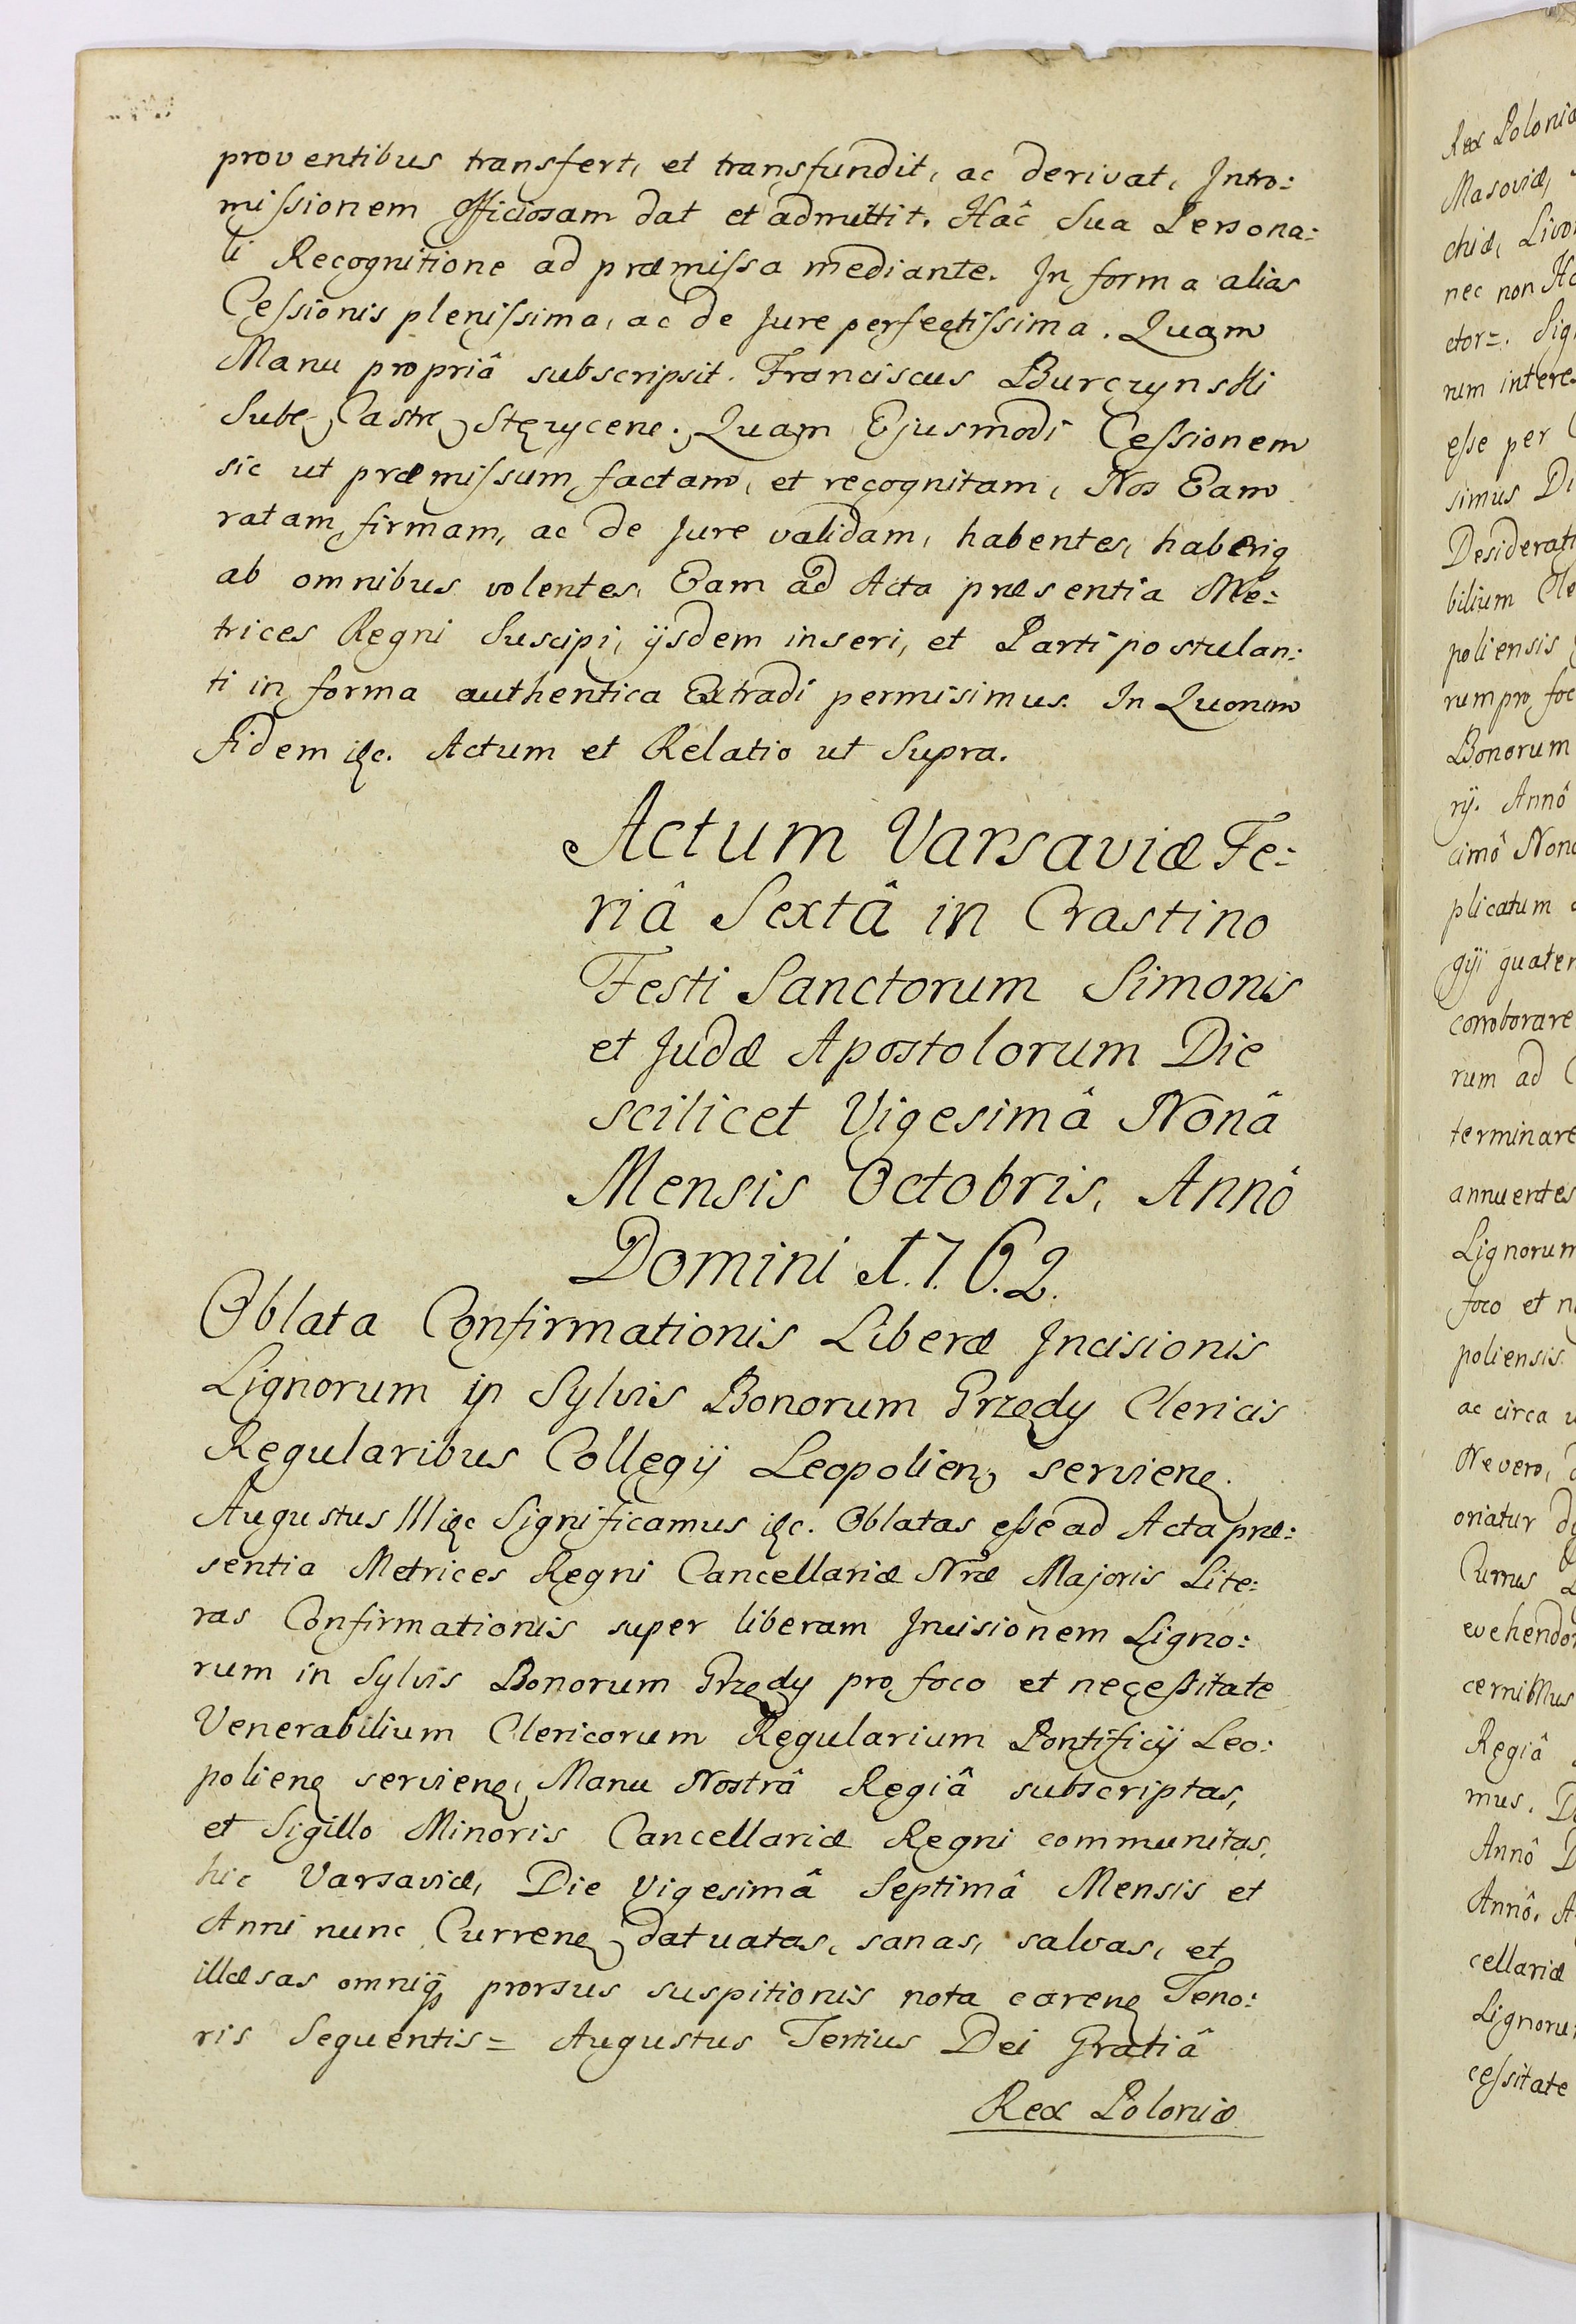 proventibus transfert, et transfundit, ac derivat, Intro:
missionem Officiosam dat et admittit. Hâc Sua Persona:
li Recognitione ad præmissa mediante. In forma alias
Cessionis plenissima, ac de Jure perfectissima. Quam
Manu propriâ subscripsit. Franciscus Burczynski
Sube Castre Stęzycene. Quam Ejusmodi Cessionem
sic ut præmissum factam, et recognitam, Nos Eam
ratam firmam, ac de Jure validam, habentes, haberiq
ab omnibus volentes, Eam ad Acta præsentia Me:
trices Regni Suscipi, ijsdem inseri, et Parti postulan:
ti in forma authentica Extradi permisimus. In Quorum
Fidem &c. Actum et Relatio ut Supra.
Actum Varsaviæ Fe:
riâ Sextâ in Crastino
Festi Sanctorum Simonis
et Judæ Apostolorum Die
scilicet Vigesimâ Nonâ
Mensis Octobris, Annô
Domini 1.7.6.2.
Oblata Confirmationis Liberæ Incisionis
Lignorum in Sylvis Bonorum Grzędy Clericis
Regularibus Collegij Leopolien serviene.
Augustus III &c Significamus &c. Oblatas esse ad Acta præ:
sentia Metrices Regni Cancellariæ Nræ Majoris Lite:
ras Confirmationis super liberam Incisionem Ligno:
rum in Sylvis Bonorum Grzędy pro foco et necessitate
Venerabilium Clericorum Regularium Pontificij Leo:
poliene serviene, Manu Nostrâ Regiâ subscriptas,
et Sigillo Minoris Cancellariæ Regni communitas,
hic Varsaviæ, Die Vigesimâ Septimâ Mensis et
Anni nunc Currene datuatas, sanas, salvas, et
illæsas omniq prorsus suspitionis nota carene Teno:
ris Sequentis= Augustus Tertius Dei Gratiâ
Rex Poloniæ
Rex Polonia
Masoviæ,
chiæ, Livo
nec non
etor=. Sig
rum intere
esse per
simus
Desiderat
bilium Cle
poliensis
rum pro foc
Bonorum
rij. Annô
cimô Nono
plicatum
gij quaten
corroborare
rum ad
terminare
annuentes
Lignorum
foco et n
poliensis
ac circa
Ne vero,
oriatur
Currus
evehendo
cernimus
Regiâ
mus.
Annô
Annô. A
cellariæ
Lignoru
cessitate